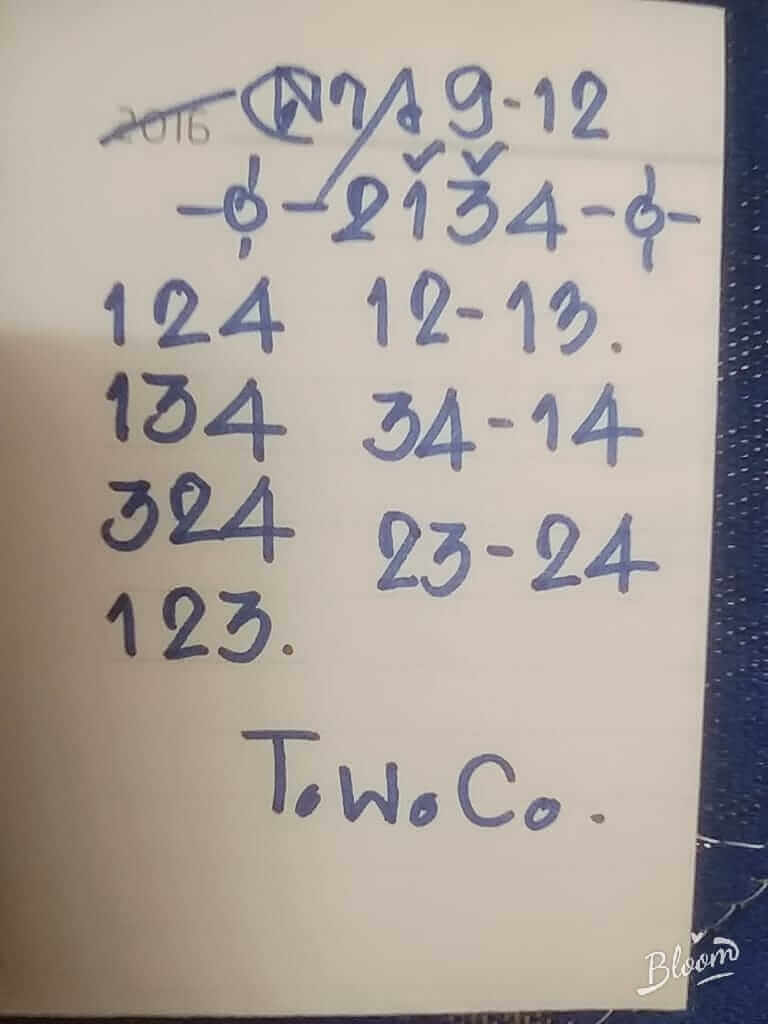 2016 9-12
2134
124 12-13.
134 34-14
324 23-24
123.
T.W.Co.
Bloom